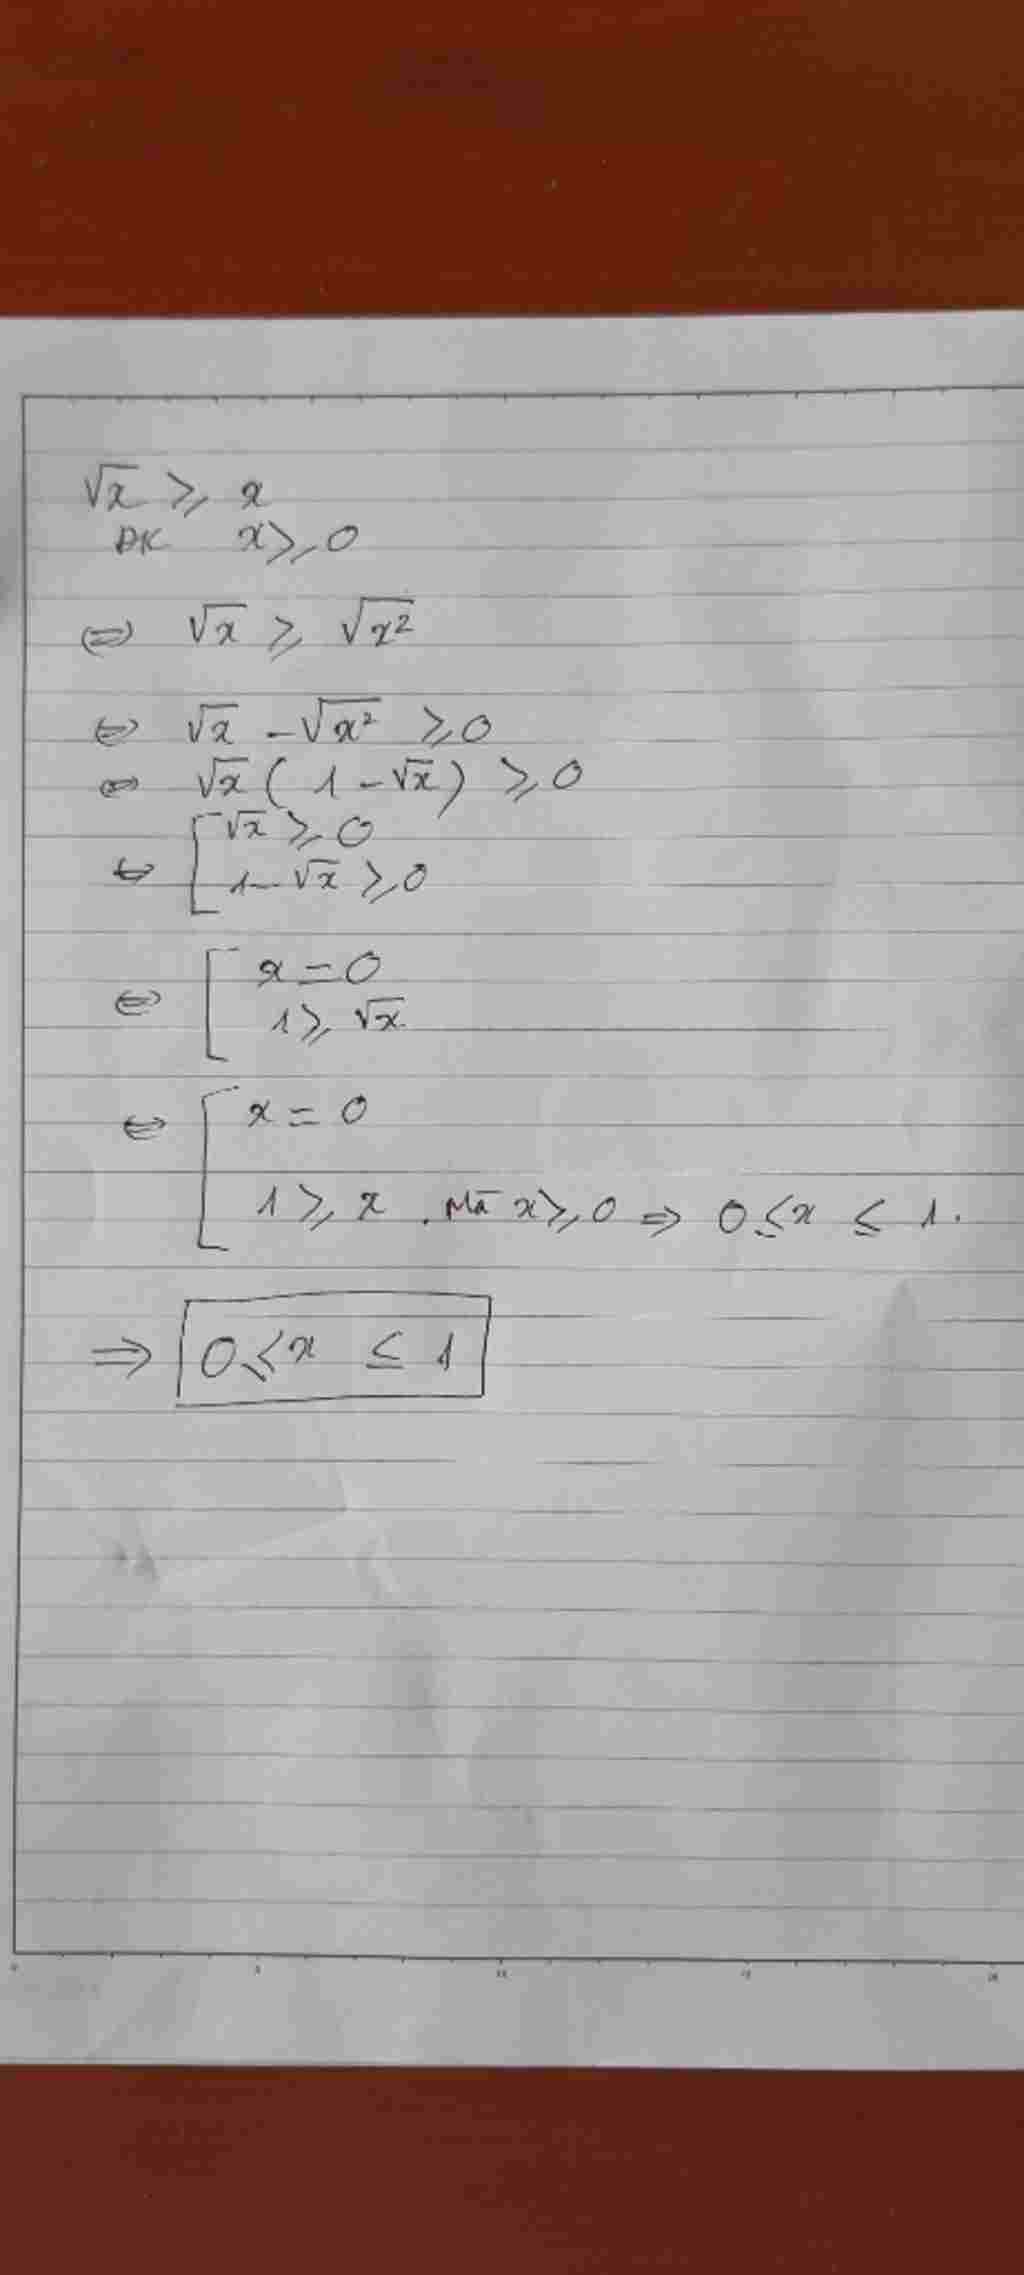 √x ≥ x
ĐK x ≥ 0
⇔ √x ≥ √x²
⇔ √x - √x² ≥ 0
⇔ √x ( 1 - √x ) ≥ 0
⇔ [ √x ≥ 0
1 - √x ≥ 0
⇔ [ x = 0
1 ≥ √x
⇔ [ x = 0
1 ≥ x . Mà x ≥ 0 ⇒ 0 ≤ x ≤ 1.
⇒ 0 ≤ x ≤ 1